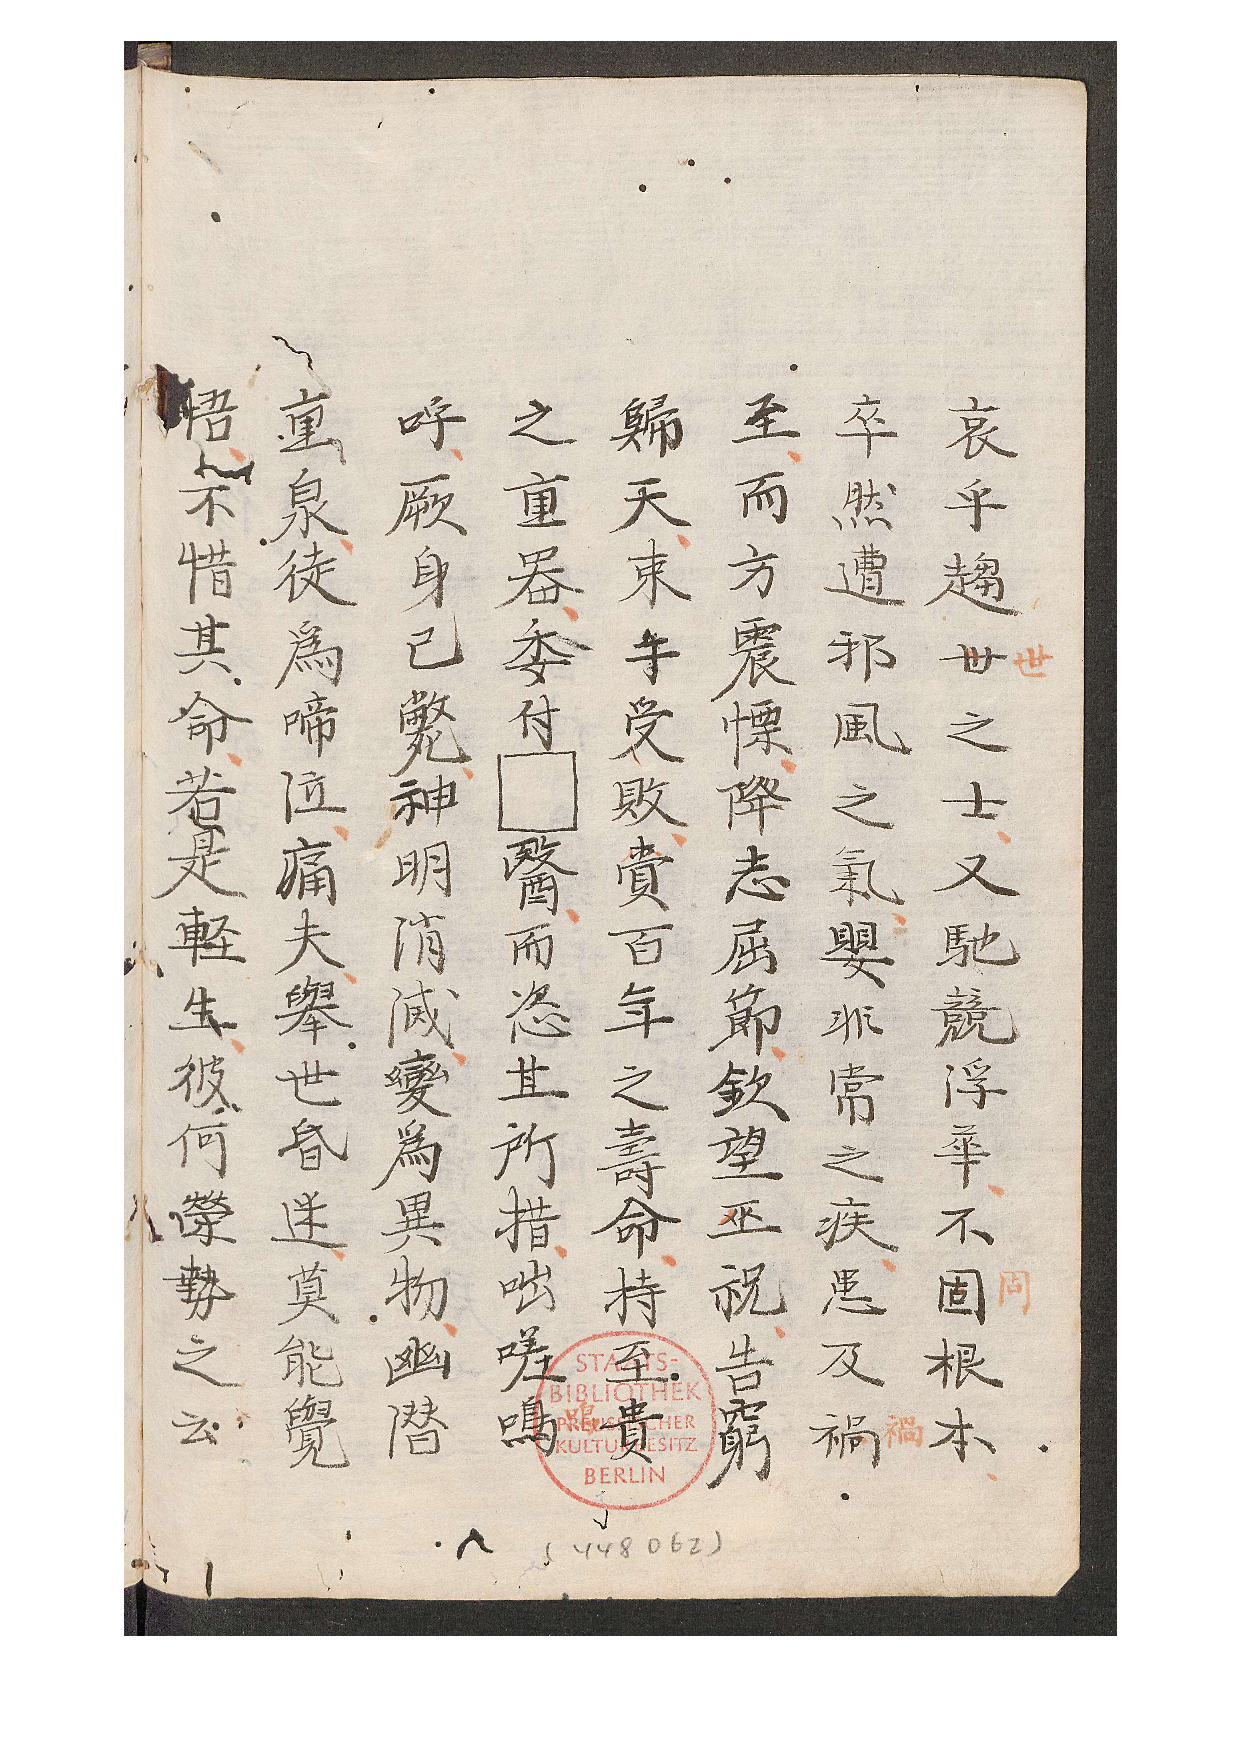 哀乎趨世之士又馳競浮華不固根本
世
固
卒然遭邪風之氣嬰非常之疾患及禍
禍
至而方震慄降志屈節欽望巫祝告窮
歸天束手受敗賫百年之壽命持至貴
之重器委付□醫而恣其所措咄嗟嗚
嗚
呼厥身已斃神明消滅變為異物幽潛
重泉徒為啼泣痛夫舉世昏迷莫能覺
悟不惜其命若是輕生彼何榮勢之云
STAATS-
BIBLIOTHEK
PREUSSISCHER
KULTURBESITZ
BERLIN
(448062)